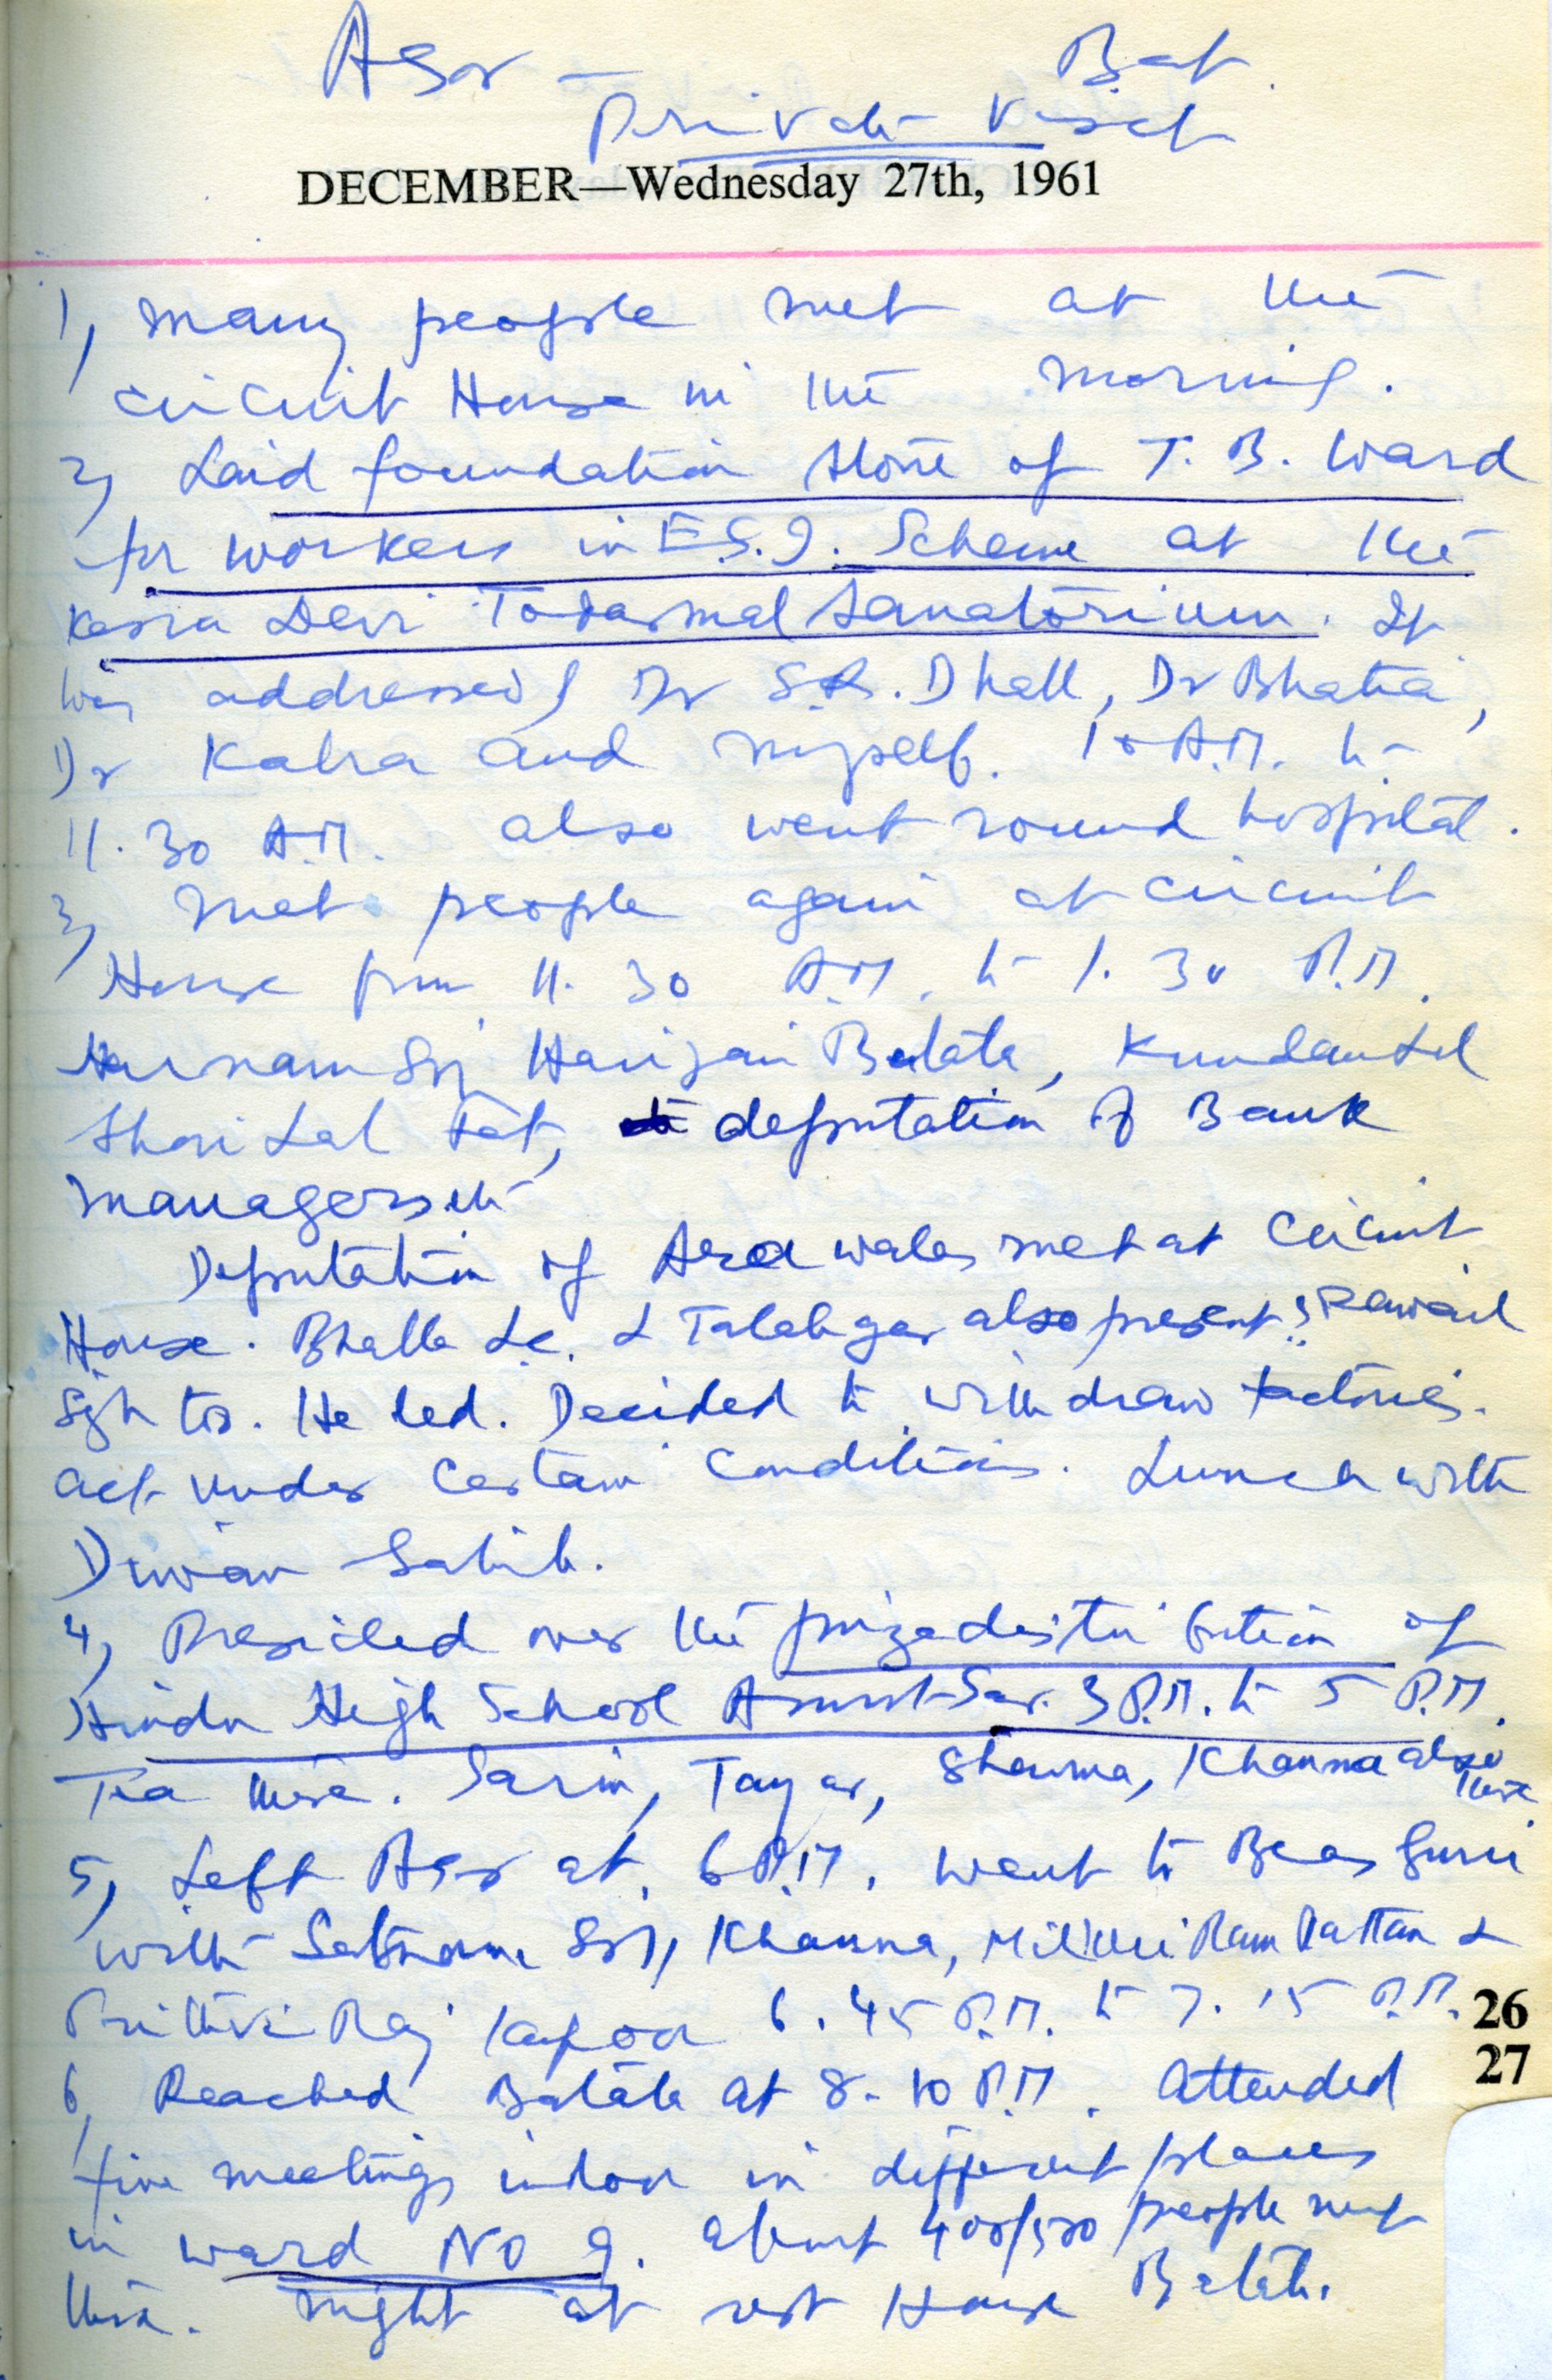 Asr — Bat.
Private Visit
DECEMBER—Wednesday 27th, 1961
1, Many people met at the
circuit House in the morning.
2, Laid foundation stone of T. B. Ward
for workers in E.S.I. Scheme at the
Kesra Devi Todarmal Sanatorium. It
was addressed by Dr S.R. Dhall, Dr Bhatia,
Dr Kalra and myself. 10 A.M. to
11.30 A.M. also went round hospital.
3, Met people again at circuit
House from 11.30 A.M. to 1.30 P.M.
Harnam Sgj Harijan Batala, Kundan Lal
Shori Lal deputation of Bank
managers etc
Deputation of wales met at Circuit
House. Bhalla L.C. & also present &
Sgh too. He led. Decided to withdraw factories.
act under certain conditions. Lunch with
Diwan Sahib.
4, Presided over the prize distribution of
Hindu High School Amritsar. 3 P.M. to 5 P.M.
Tea there. Sarin, Tayar, Sharma, Khanna also
there
5, Left Asr at 6 P.M. went to Beas Guru
with Satnam Sgj, Khanna, Milkhi Ram Rattan &
Prithvi Raj Kapoor 6.45 P.M. to 7.15 P.M.
26
27
6, Reached Batala at 8-10 P.M. Attended
five meetings indoor in different places
in ward No 9. about 400/500 people met
there. night at rest House Batala.